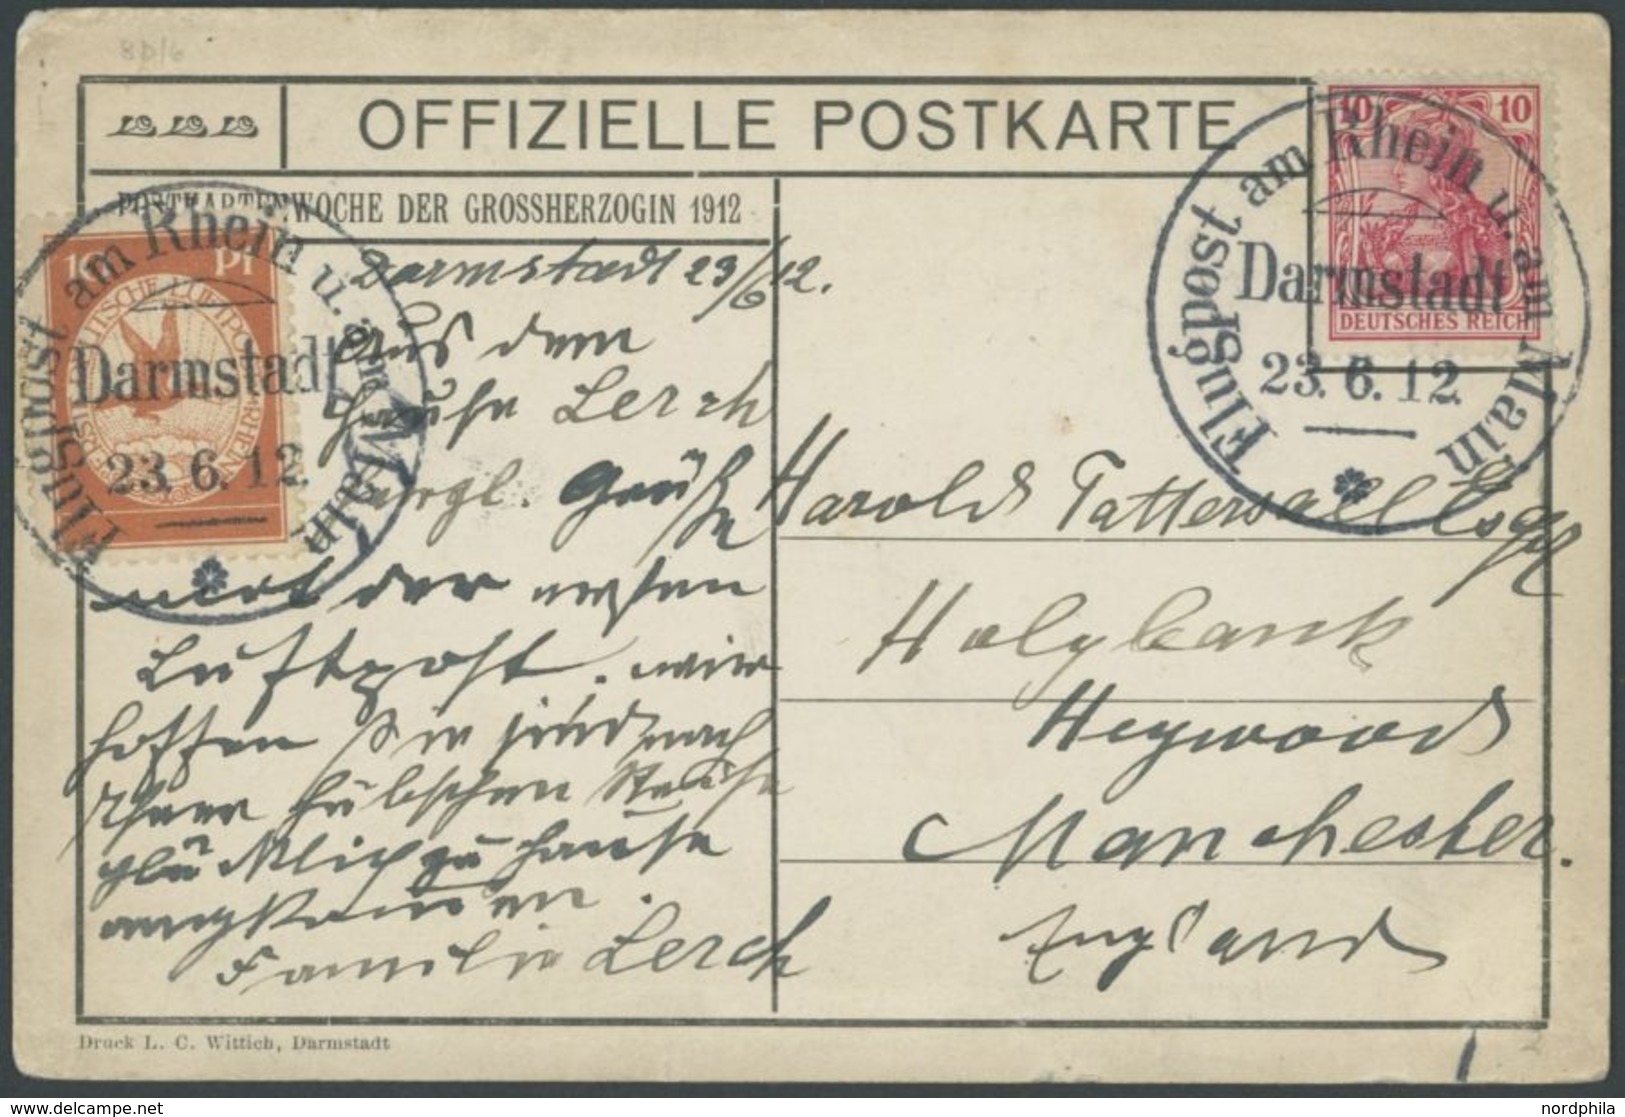 8D/6
OFFIZIELLE POSTKARTE
POSTKARTENWOCHE DER GROSSHERZOGIN 1912
10 Pf
Flugpost am Rhein u. am Main
Darmstadt
23. 6. 12.
10 10
DEUTSCHES REICH
Flugpost am Rhein u. am Main
Darmstadt
23. 6. 12.
Darmstadt 23/6 12.
Aus dem
Hause Lerch
Grüße
mit der ersten
Luftpost. wir
hoffen Sie sind nach
Ihrer hübschen Reise
glücklich zu Hause
angekommen.
Familie Lerch
Harold Tattersall Esqr
Holybank
Heywood
Manchester.
England
Druck L. C. Wittich, Darmstadt
nordphila